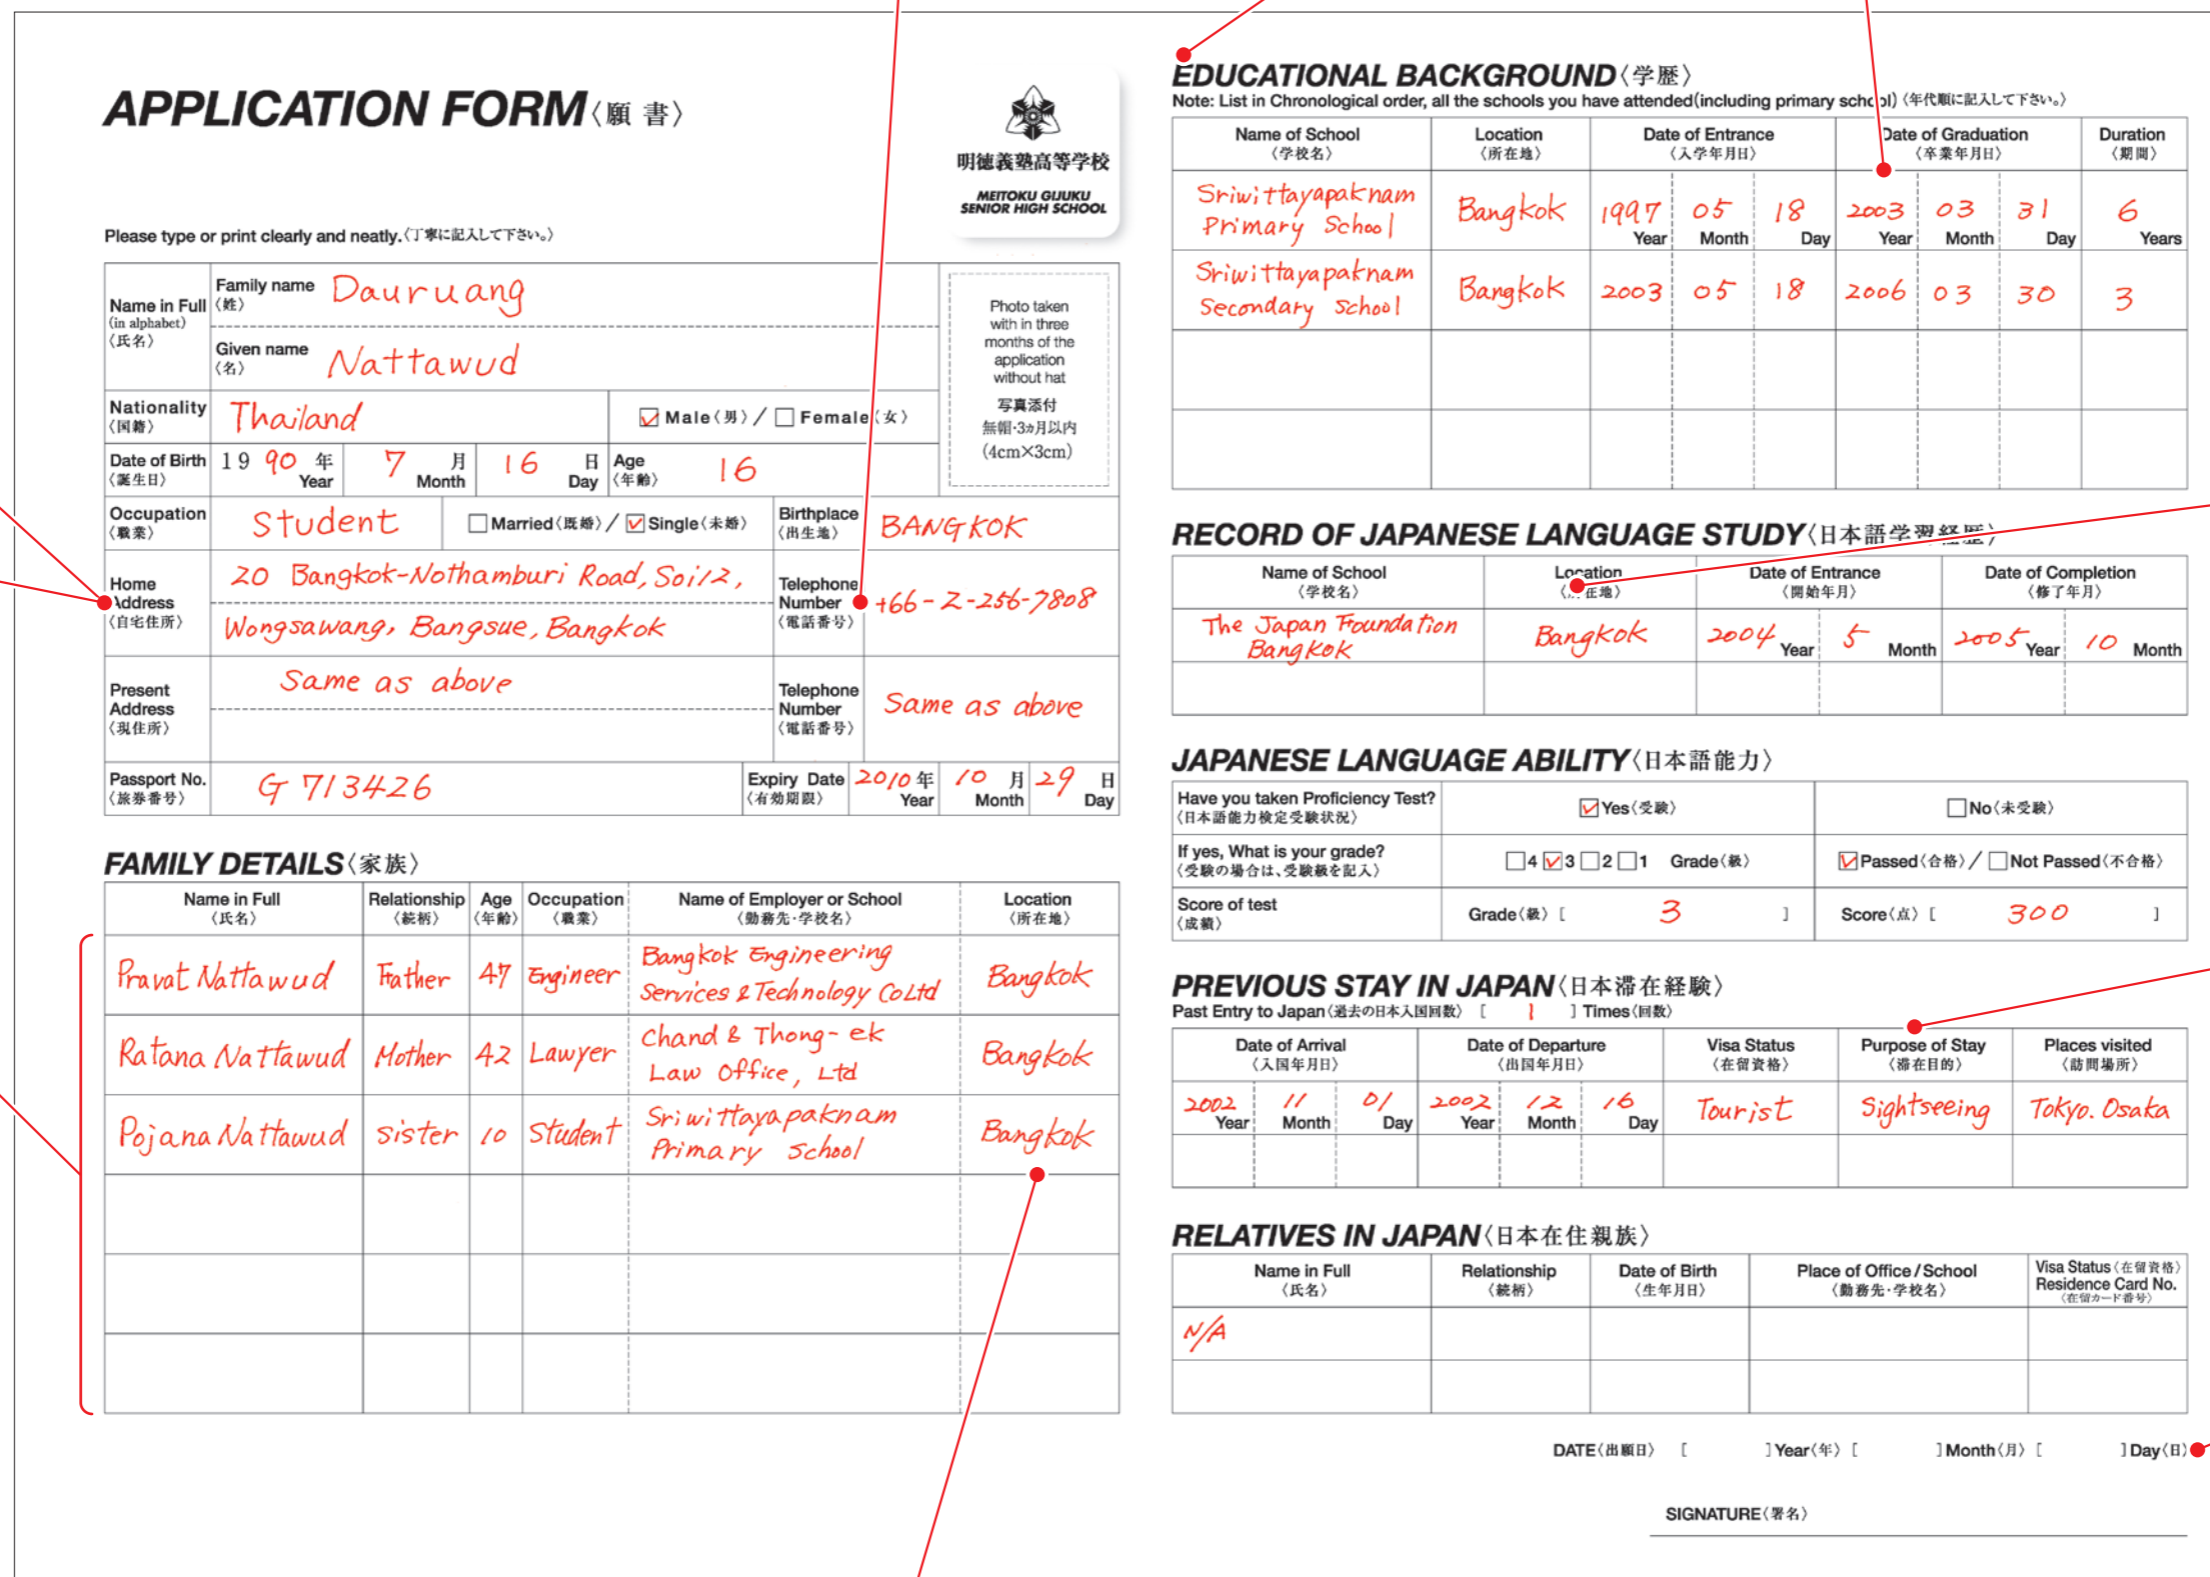 APPLICATION FORM〈願 書〉
明徳義塾高等学校
MEITOKU GIJUKU
SENIOR HIGH SCHOOL
Please type or print clearly and neatly.〈丁寧に記入して下さい。〉
Name in Full
(in alphabet)
〈氏名〉
Family name Dauruang
〈姓〉
Given name Nattawud
〈名〉
Photo taken
with in three
months of the
application
without hat
写真添付
無帽・3ヵ月以内
(4cm×3cm)
Nationality Thailand Male〈男〉/ Female〈女〉
〈国籍〉
Date of Birth 19 90 年 7 月 16 日 Age 16
〈誕生日〉 Year Month Day 〈年齢〉
Occupation Student Married〈既婚〉/ Single〈未婚〉 Birthplace BANGKOK
〈職業〉 〈出生地〉
Home
Address
〈自宅住所〉
20 Bangkok-Nothamburi Road, Soi12,
Wongsawang, Bangsue, Bangkok
Telephone
Number
〈電話番号〉
+66-2-256-7808
Present
Address
〈現住所〉
Same as above
Telephone
Number
〈電話番号〉
Same as above
Passport No. G 713426 Expiry Date 2010 年 10 月 29 日
〈旅券番号〉 〈有効期限〉 Year Month Day
FAMILY DETAILS〈家族〉
Name in Full Relationship Age Occupation Name of Employer or School Location
〈氏名〉 〈続柄〉 〈年齢〉 〈職業〉 〈勤務先・学校名〉 〈所在地〉
Pravat Nattawud Father 47 Engineer Bangkok Engineering Services & Technology Co Ltd Bangkok
Ratana Nattawud Mother 42 Lawyer Chand & Thong-ek Law Office, Ltd Bangkok
Pojana Nattawud sister 10 Student Sriwittayapaknam Primary School Bangkok
EDUCATIONAL BACKGROUND〈学歴〉
Note: List in Chronological order, all the schools you have attended(including primary school)〈年代順に記入して下さい。〉
Name of School Location Date of Entrance Date of Graduation Duration
〈学校名〉 〈所在地〉 〈入学年月日〉 〈卒業年月日〉 〈期間〉
Sriwittayapaknam Primary School Bangkok 1997 05 18 2003 03 31 6
Year Month Day Year Month Day Years
Sriwittayapaknam Secondary School Bangkok 2003 05 18 2006 03 30 3
RECORD OF JAPANESE LANGUAGE STUDY〈日本語学習経歴〉
Name of School Location Date of Entrance Date of Completion
〈学校名〉 〈所在地〉 〈開始年月〉 〈修了年月〉
The Japan Foundation Bangkok Bangkok 2004 Year 5 Month 2005 Year 10 Month
JAPANESE LANGUAGE ABILITY〈日本語能力〉
Have you taken Proficiency Test? Yes〈受験〉 No〈未受験〉
〈日本語能力検定受験状況〉
If yes, What is your grade? 4 3 2 1 Grade〈級〉 Passed〈合格〉/ Not Passed〈不合格〉
〈受験の場合は、受験級を記入〉
Score of test Grade〈級〉 [ 3 ] Score〈点〉 [ 300 ]
〈成績〉
PREVIOUS STAY IN JAPAN〈日本滞在経験〉
Past Entry to Japan〈過去の日本入国回数〉 [ 1 ] Times〈回数〉
Date of Arrival Date of Departure Visa Status Purpose of Stay Places visited
〈入国年月日〉 〈出国年月日〉 〈在留資格〉 〈滞在目的〉 〈訪問場所〉
2002 11 01 2002 12 16 Tourist Sightseeing Tokyo. Osaka
Year Month Day Year Month Day
RELATIVES IN JAPAN〈日本在住親族〉
Name in Full Relationship Date of Birth Place of Office/School Visa Status〈在留資格〉
〈氏名〉 〈続柄〉 〈生年月日〉 〈勤務先・学校名〉 Residence Card No.
〈在留カード番号〉
N/A
DATE〈出願日〉 [ ] Year〈年〉 [ ] Month〈月〉 [ ] Day〈日〉
SIGNATURE〈署名〉